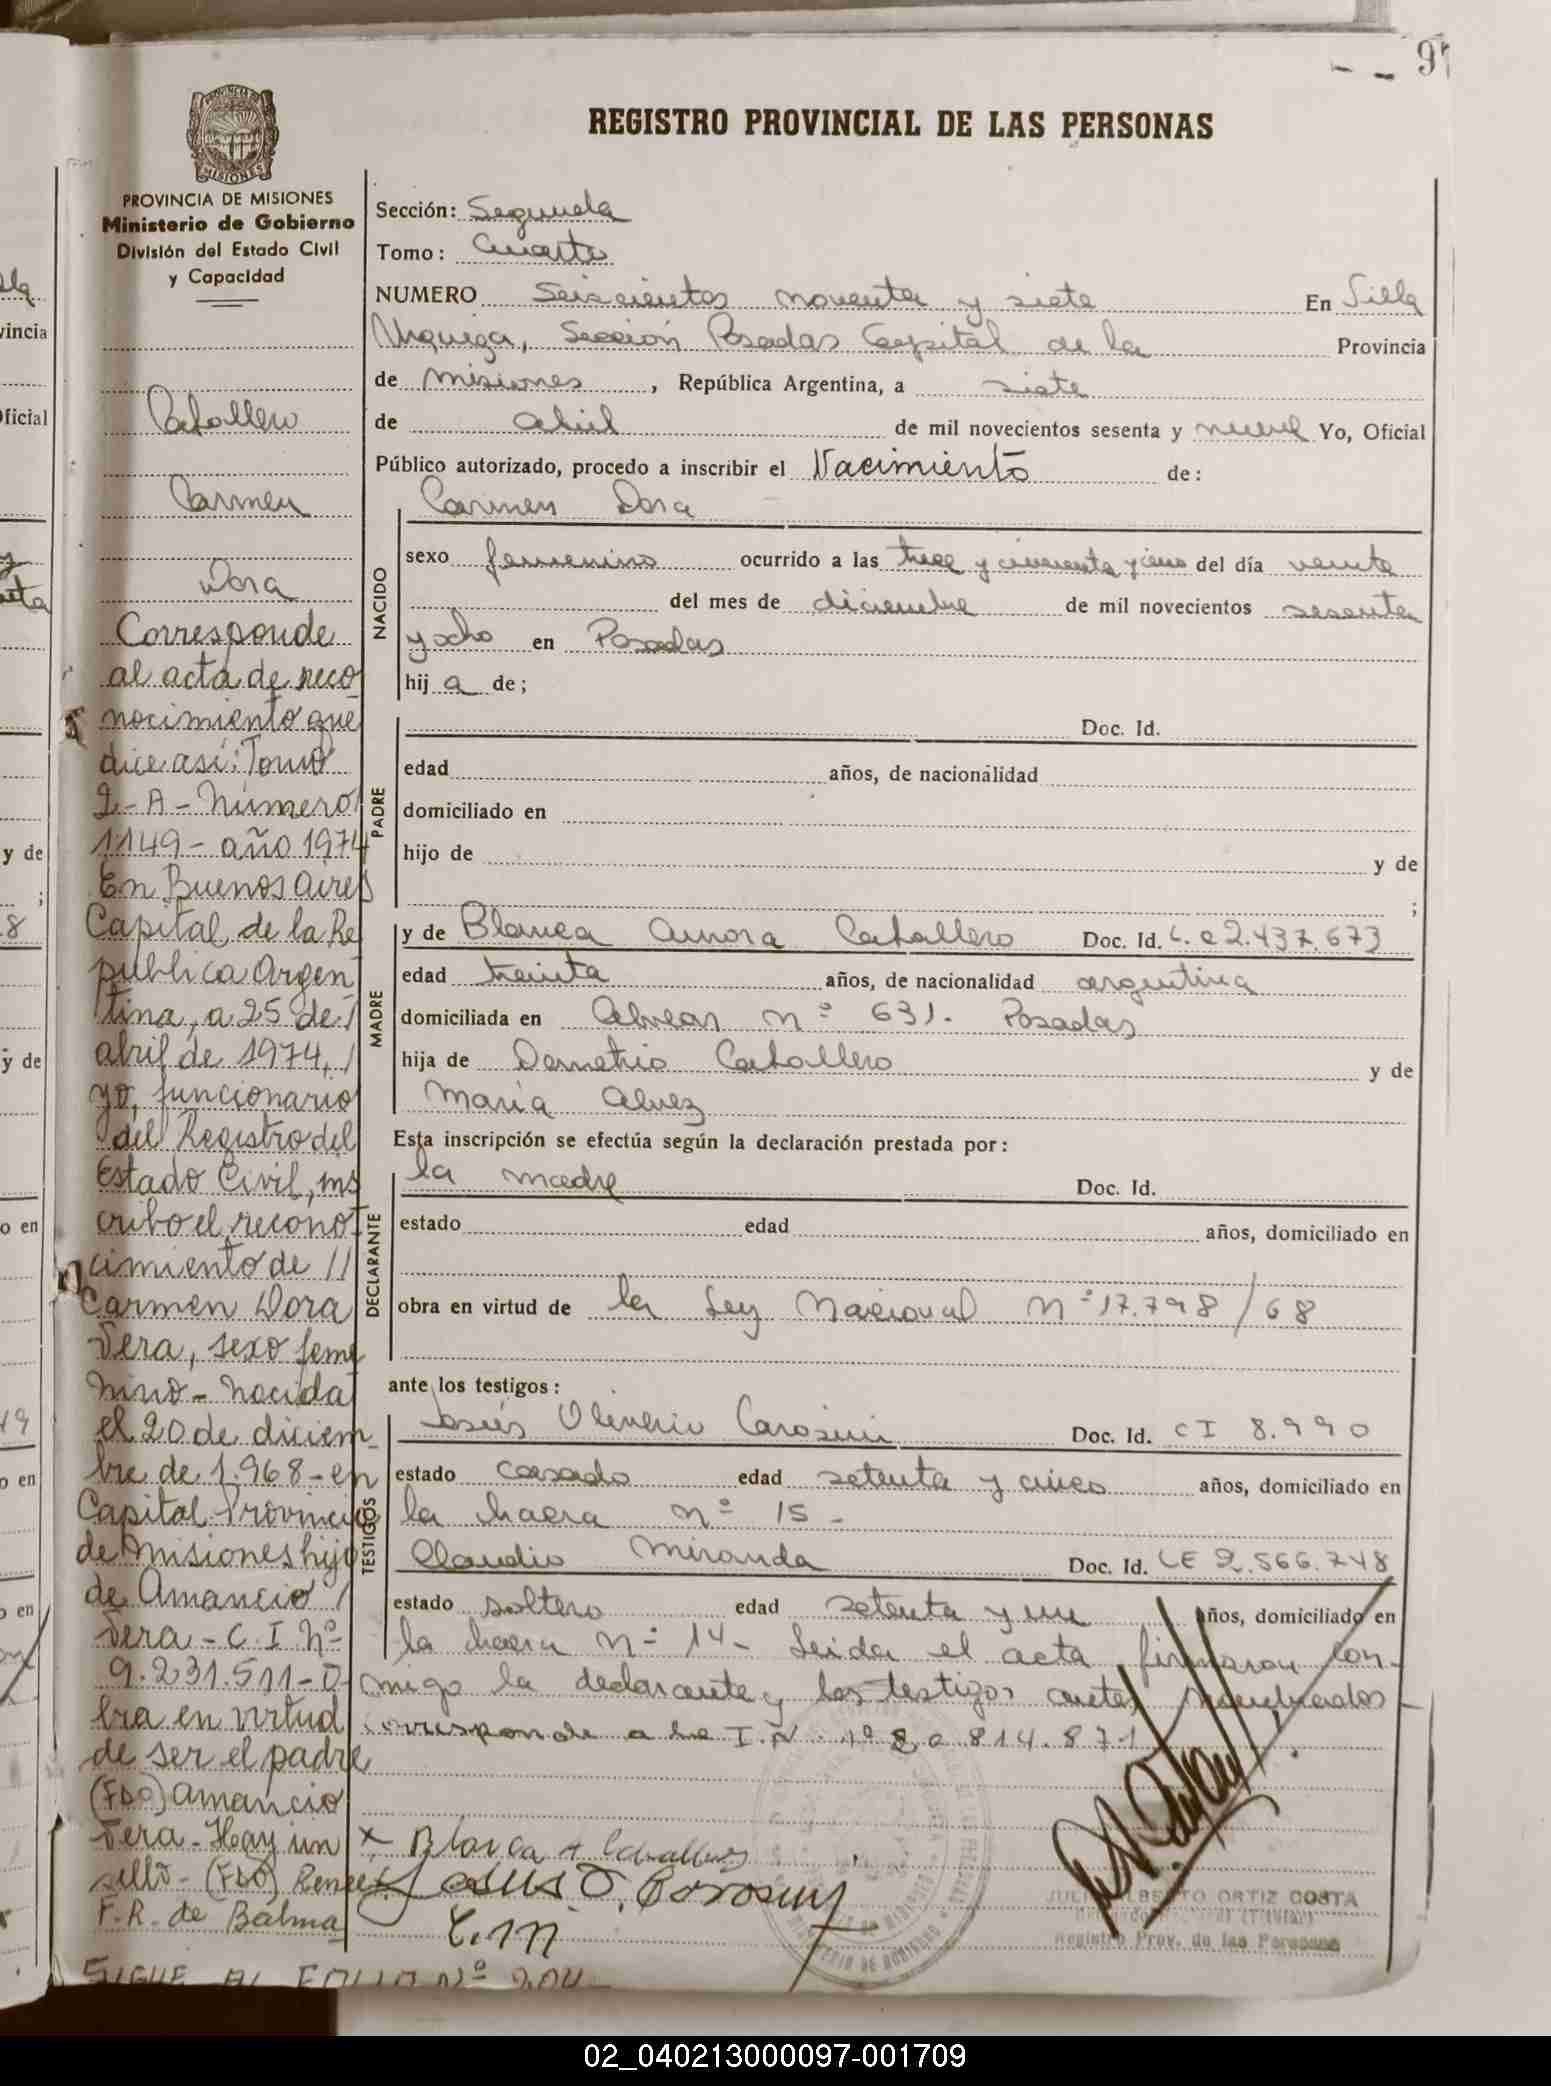 97
REGISTRO PROVINCIAL DE LAS PERSONAS
PROVINCIA DE MISIONES
Ministerio de Gobierno
División del Estado Civil
y Capacidad
Caballero
Carmen
Dora
Corresponde
al acta de reco
nocimiento que
dice así: Tomo
2-A-Número
1149- año 1974
En Buenos Aires
Capital de la Re
pública Argen
tina, a 25 de /
abril de 1974, /
yo, funcionario
del Registro del
Estado Civil, ins
cribo el recono-
cimiento de //
Carmen Dora
Vera, sexo feme
nino- nacida
el 20 de diciem-
bre de 1.968- en
Capital Provincia
de Misiones hija
de Amancio /
Vera - C. I Nº
9.231.511- O
bra en virtud
de ser el padre
(FDO) Amancio
Vera - Hay un
sello - (FDO) Renee
F. R. de Balma
SIGUE AL FOLIO Nº 204
Sección: Segunda
Tomo: Cuarto
NUMERO Seiscientos noventa y siete En Villa
Urquiza, Sección Posadas Capital de la Provincia
de Misiones, República Argentina, a siete
de abril de mil novecientos sesenta y nueve Yo, Oficial
Público autorizado, procedo a inscribir el Nacimiento de:
NACIDO
Carmen Dora
sexo femenino ocurrido a las trece y cincuenta y cinco del día veinte
del mes de diciembre de mil novecientos sesenta
y ocho en Posadas
hij a de;
PADRE
Doc. Id.
edad años, de nacionalidad
domiciliado en
hijo de y de
;
MADRE
y de Blanca Aurora Caballero Doc. Id. L.C 2.437.673
edad treinta años, de nacionalidad argentina
domiciliada en Alvear nº 631. Posadas
hija de Demetrio Caballero y de
María Alvez
Esta inscripción se efectúa según la declaración prestada por:
DECLARANTE
la madre Doc. Id.
estado edad años, domiciliado en
obra en virtud de la Ley Nacional Nº 17.798/68
ante los testigos:
TESTIGOS
Jesús Oliverio Carosini Doc. Id. CI 8.990
estado casado edad setenta y cinco años, domiciliado en
la chacra nº 15-
Claudio Miranda Doc. Id. LE 2.566.748
estado soltero edad setenta y un años, domiciliado en
la chacra nº 14- Leida el acta, firmaron con-
migo la declarante y los testigos antes nombrados-
corresponde a la I.N. Nº 20.814.871
x Blanca A Caballero
Jesus O. Carosini
C.M
JULIO ALBERTO ORTIZ COSTA
Registro Prov. de las Personas
02_040213000097-001709